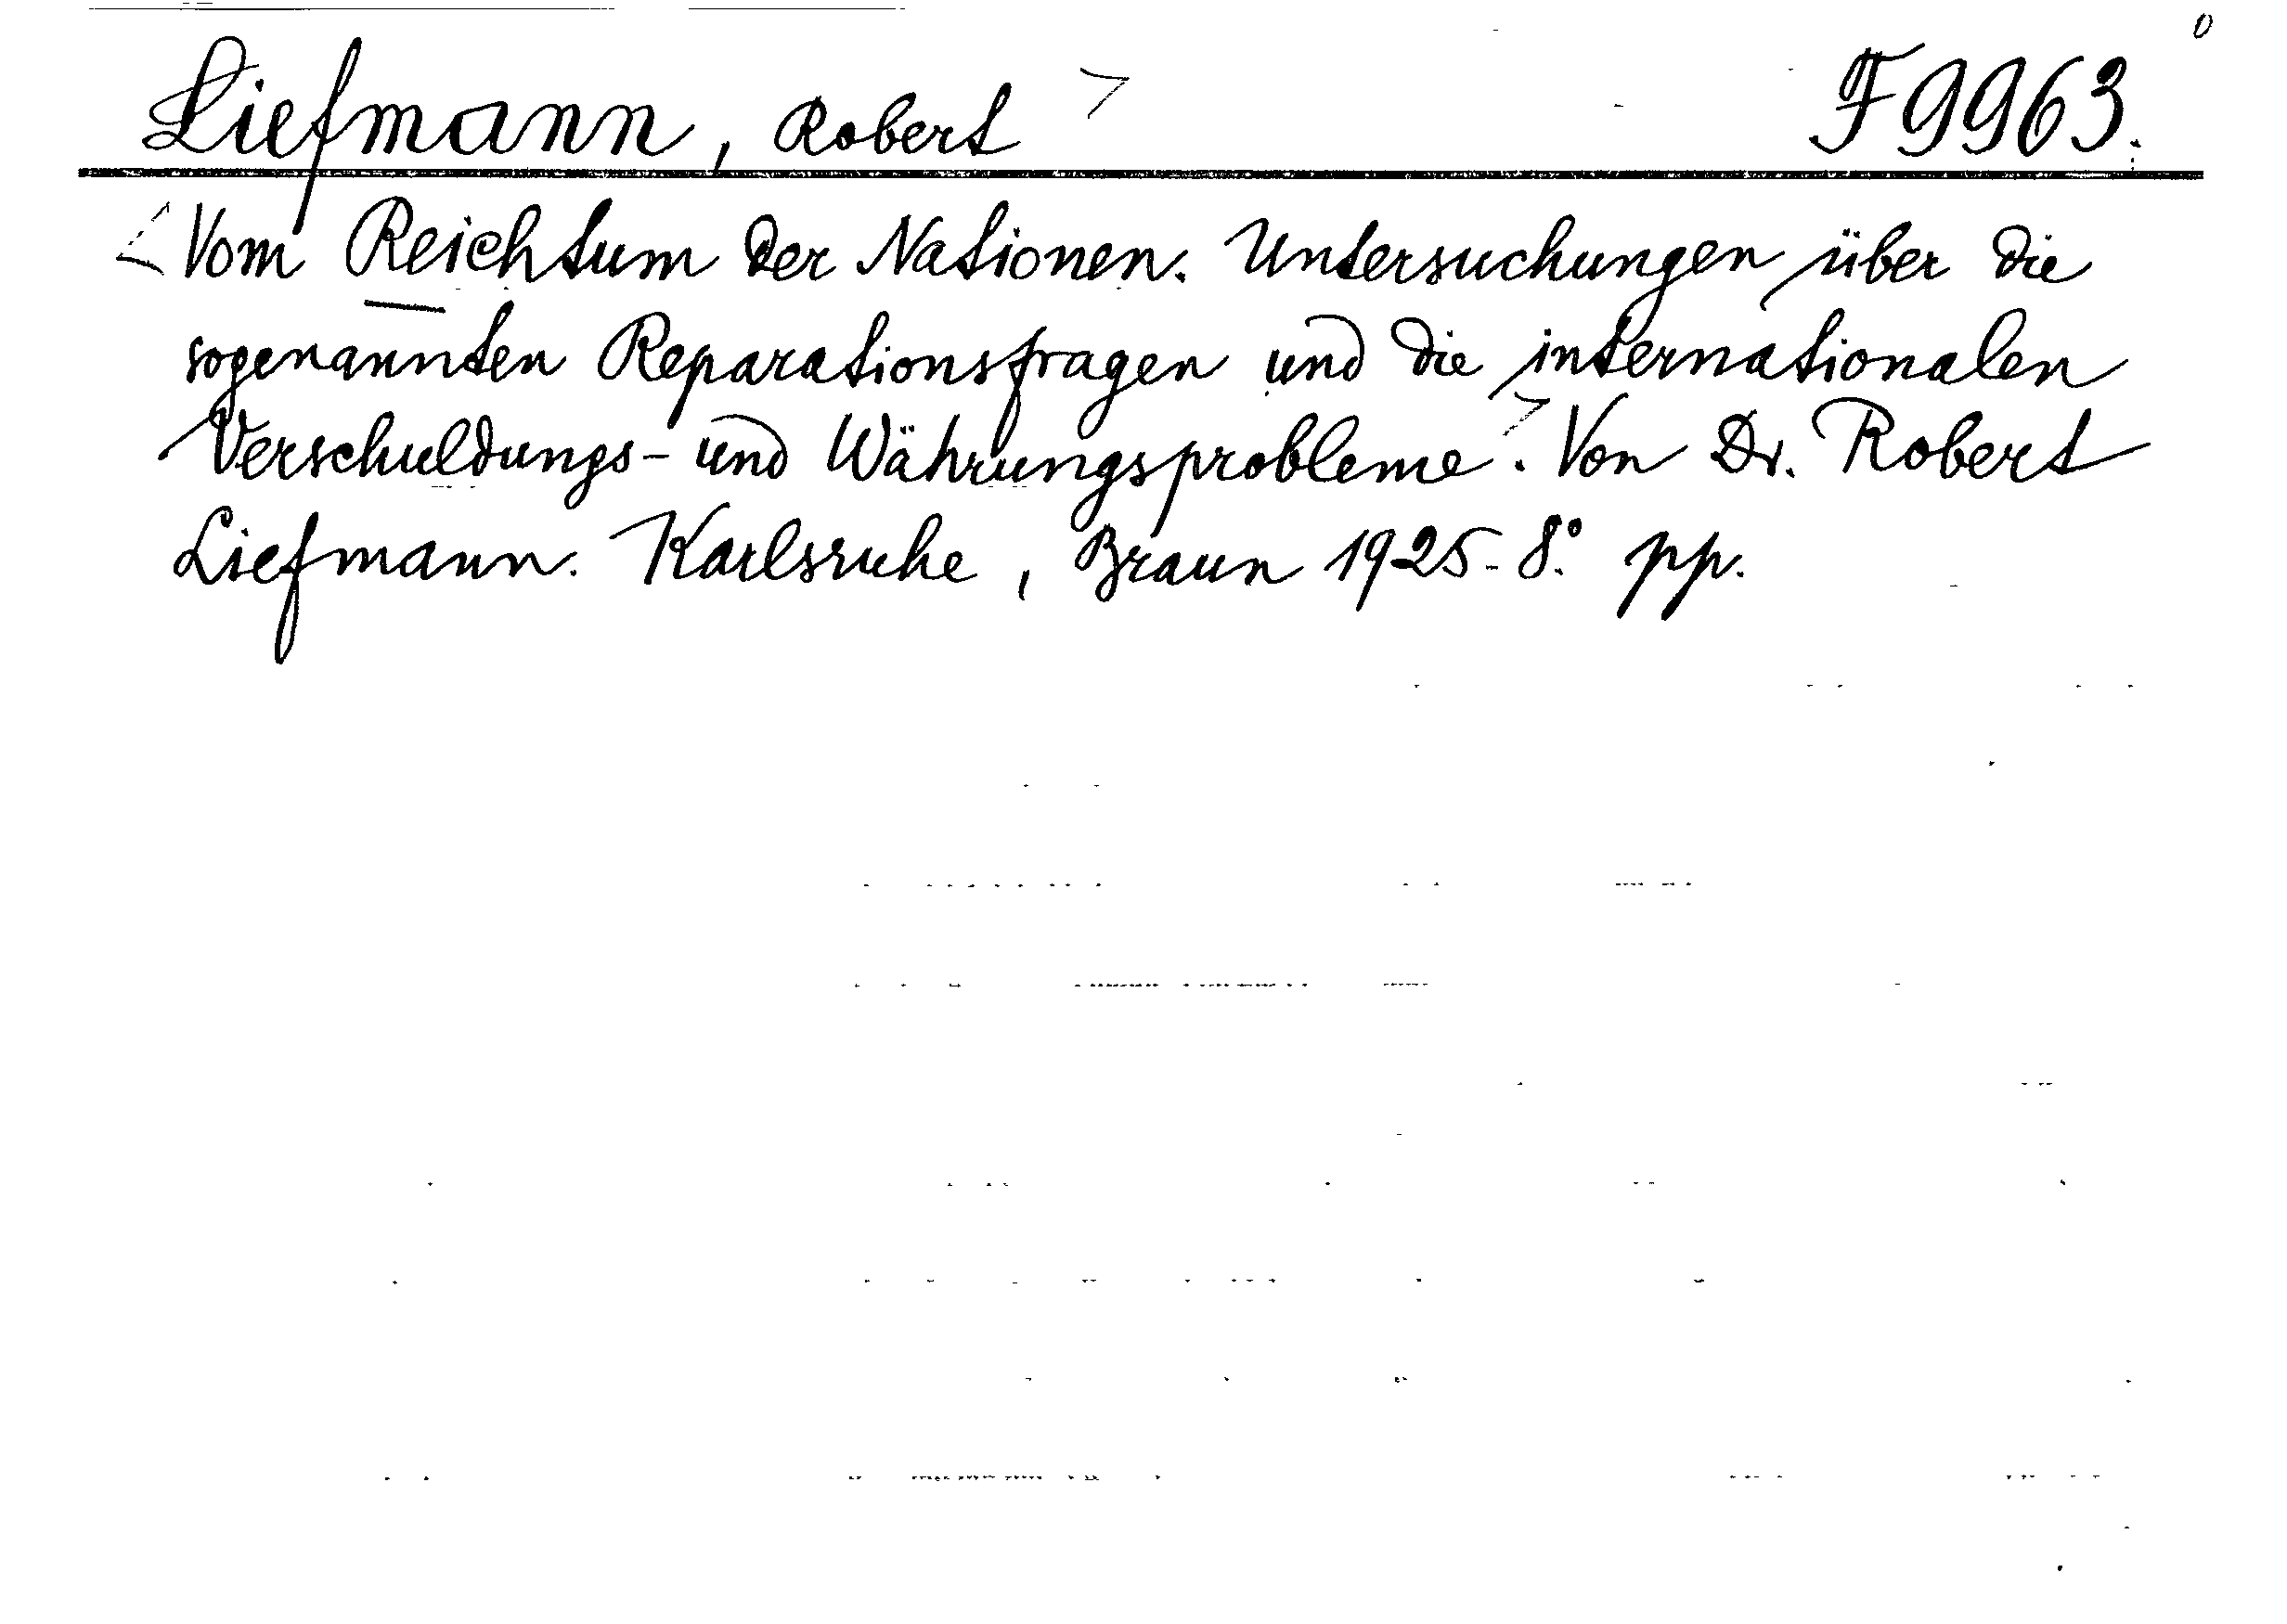 Liefmann, Robert > F 9963.
<Vom Reichtum der Nationen. Untersuchungen über die
sogenannten Reparationsfragen und die internationalen
Verschuldungs- und Währungsprobleme>. Von Dr. Robert
Liefmann. Karlsruhe, Braun 1925. 8° pp.